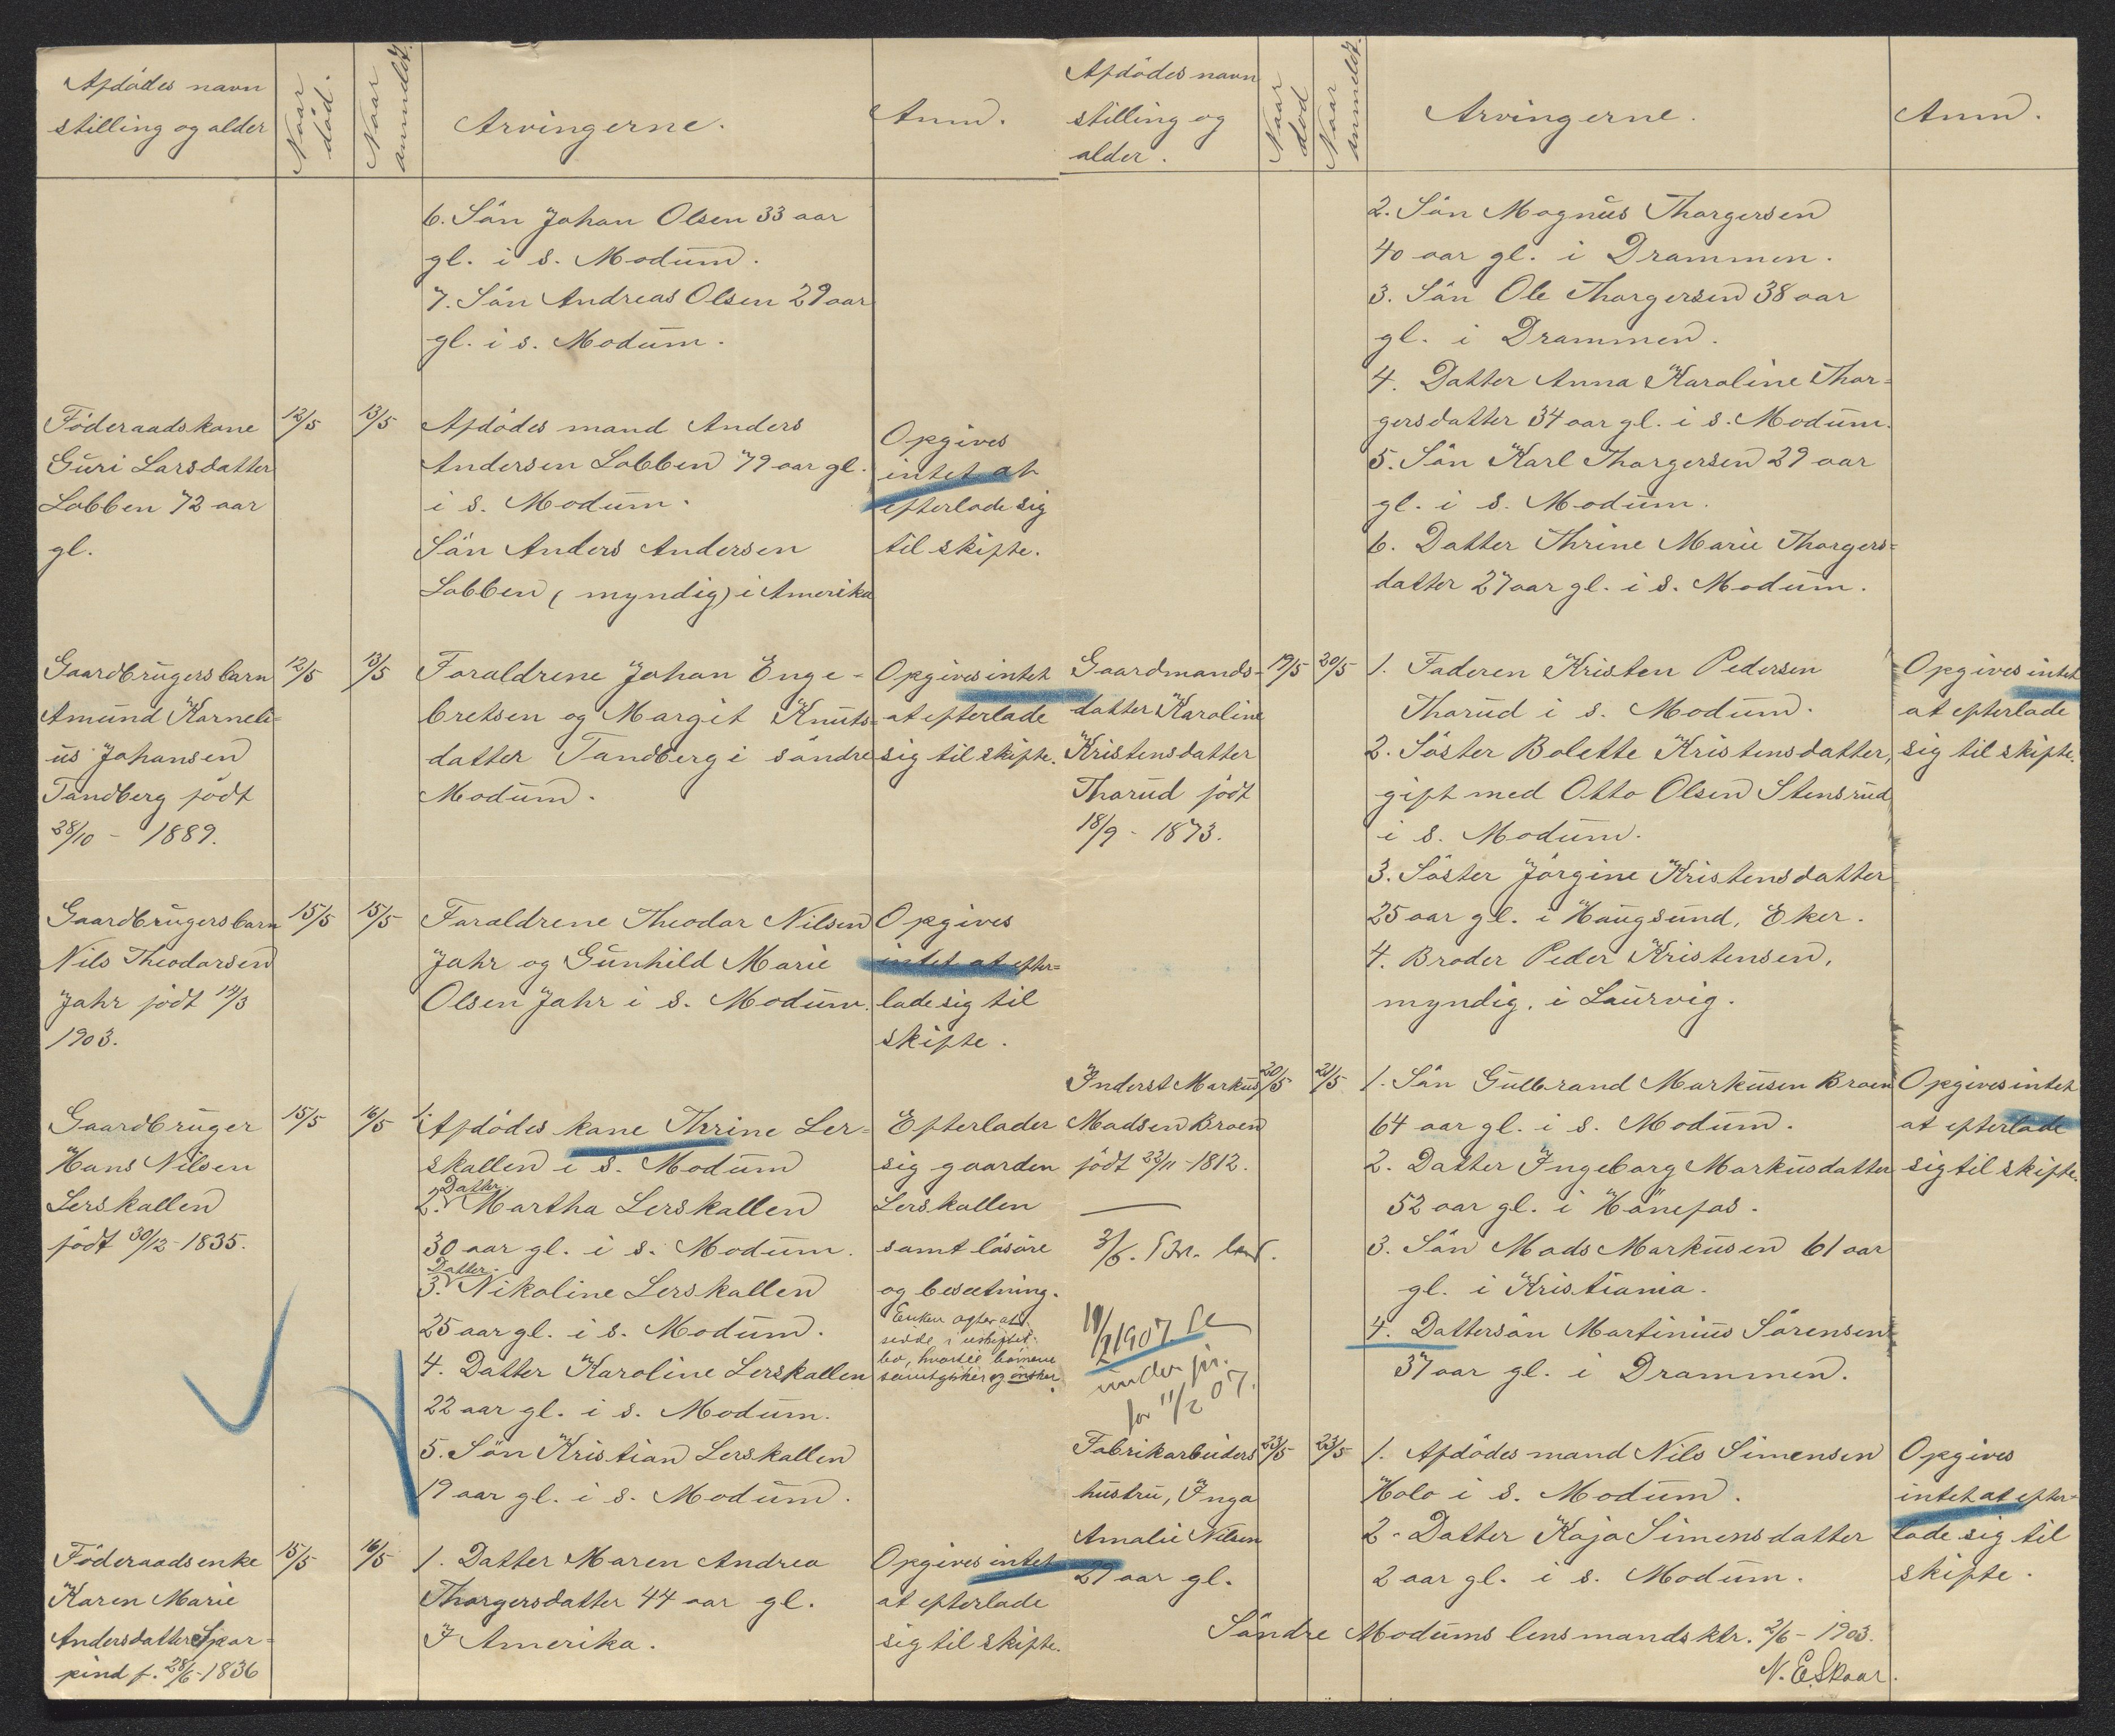 Afdödes navn
stilling og alder
Naar
död.
Naar
anmeldt.
Arvingerne.
Anm.
6. Sön Johan Olsen 33 aar
gl. i s. Modum.
7. Sön Andreas Olsen 29 aar
gl. i s. Modum.
Föderaadskone
Guri Larsdatter
Lobben 72 aar
gl.
12/5
13/5
Afdödes mand Anders
Andersen Lobben 79 aar gl.
i s. Modum.
Sön Anders Andersen
Lobben (myndig) i Amerika
Opgives
intet at
efterlade sig
til skifte.
Gaardbrugersbarn
Amund Karneli=
us Johansen
Tandberg födt
28/10 - 1889.
12/5
13/5
Foraldrene Johan Enge-
bretsen og Margit Knuts=
datter Tandberg i söndre
Modum.
Opgives intet
at efterlade
sig til skifte.
Gaardbrugersbarn
Nils Theodorsen
Jahr födt 14/3
1903.
15/5
15/5
Foraldrene Theodor Nilsen
Jahr og Gunhild Marie
Olsen Jahr i s. Modum.
Opgives
intet at efter=
lade sig til
skifte.
Gaardbruger
Hans Nilsen
Lerskallen
födt 30/12 - 1835.
15/5
16/5
1. Afdödes kone Thrine Ler-
skallen i s. Modum
Datter
2. Martha Lerskallen
30 aar gl. i s. Modum.
Datter
3. Nikoline Lerskallen
25 aar gl. i s. Modum.
4. Datter Karoline Lerskallen
22 aar gl. i s. Modum.
5. Sön Kristian Lerskallen
19 aar gl. i s. Modum.
Efterlader
sig gaarden
Lerskallen
samt lösöre
og besetning.
Enken agter at
sidde i uskiftet
bo, hvortil börnene
samtykker og önsker.
Föderaadsenke
Karen Marie
Andersdatter Skar-
pind f. 28/6 - 1836
15/5
16/5
1. Datter Maren Andrea
Thorgersdatter 44 aar gl.
I Amerika.
Opgives intet
at efterlade
sig til skifte.
Afdödes navn
stilling og
alder.
Naar
död
Naar
anmeldt.
Arvingerne.
Anm.
2. Sön Magnus Thorgersen
40 aar gl. i Drammen.
3. Sön Ole Thorgersen 38 aar
gl. i Drammen.
4. Datter Anna Karoline Thor=
gersdatter 34 aar gl. i s. Modum.
5. Sön Karl Thorgersen 29 aar
gl. i s. Modum.
6. Datter Thrine Marie Thorgers=
datter 27 aar gl. i s. Modum.
Gaardmands-
datter Karoline
Kristensdatter
Thorud födt
18/9 - 1873.
19/5
20/5
1. Faderen Kristen Pedersen
Thorud i s. Modum.
2. Söster Bolette Kristensdatter,
gift med Otto Olsen Stensrud
i s. Modum.
3. Söster Jörgine Kristensdatter
25 aar gl. i Haugsund, Eker.
4. Broder Peder Kristensen,
myndig, i Laurvig.
Opgives intet
at efterlade
sig til skifte.
Inderst Markus
Madsen Broen
födt 23/11 - 1812.
3/6.
11/2 1907
under jn.
for 11/2 07.
20/5
21/5
1. Sön Gulbrand Markusen Broen
64 aar gl. i s. Modum.
2. Datter Ingeborg Markusdatter
52 aar gl. i Hönefos.
3. Sön Mads Markusen 61 aar
gl. i Kristiania.
4. Dattersön Martinius Sörensen
37 aar gl. i Drammen.
Opgives intet
at efterlade
sig til skifte.
Fabrikarbeiders
hustru, Inga
Amalie Nilsen
29 aar gl.
23/5
23/5
1. Afdödes mand Nils Simensen
Holo i s. Modum.
2. Datter Kaja Simensdatter
2 aar gl. i s. Modum.
Opgives
intet at efter-
lade sig til
skifte.
Söndre Modums lensmandsktr. 2/6 - 1903.
N. E. Skaar.